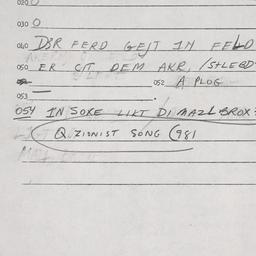 020 0
030 0
040 DER FERD GEJT IN FELD
050 ER CIT DEM AKR,
052 A PLOG
053
054 IN SOXE LIKT DI MAZL BROX
Q ZIONIST SONG (981